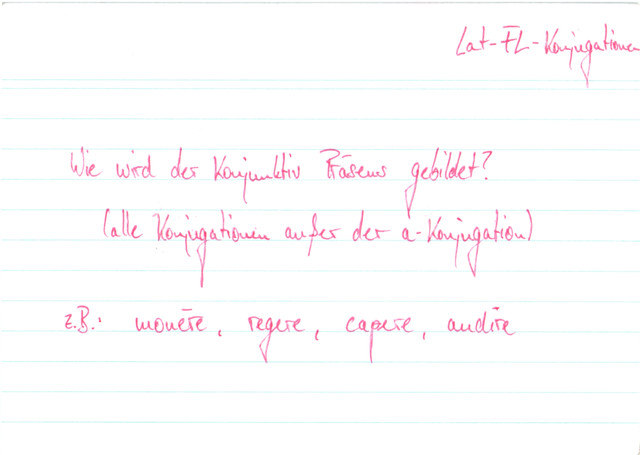 Lat-FL-Konjugationen
Wie wird der Konjunktiv Präsens gebildet?
(alle Konjugationen außer der a-Konjugation)
z.B.: monēre, regere, capere, audīre